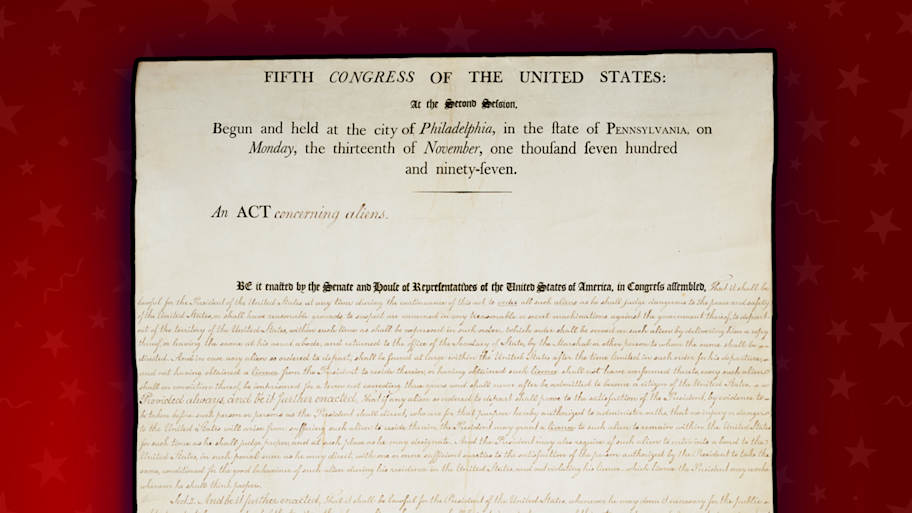 FIFTH CONGRESS OF THE UNITED STATES:
At the Second Session,
Begun and held at the city of Philadelphia, in the ſtate of PENNSYLVANIA, on
Monday, the thirteenth of November, one thouſand ſeven hundred
and ninety-ſeven.
An ACT concerning aliens.
BE it enacted by the Senate and Houſe of Repreſentatives of the United States of America, in Congreſs aſſembled, That it shall be
lawful for the President of the United States at any time during the continuance of this act to order all such aliens as he shall judge dangerous to the peace and safety
of the United States, or shall have reasonable grounds to suspect are concerned in any treasonable or secret machinations against the government thereof, to depart
out of the territory of the United States, within such time as shall be expressed in such order, which order shall be served on such alien by delivering him a copy
thereof or leaving the same at his usual abode, and returned to the office of the Secretary of State, by the Marshal or other person to whom the same shall be
directed. And in case any alien so ordered to depart, shall be found at large within the United States after the time limited in such order for his departure,
and not having obtained a licence from the President to reside therein, or having obtained such licence shall not have conformed thereto, every such alien
shall on conviction thereof, be imprisoned for a term not exceeding three years and shall never after be admitted to become a citizen of the United States,
Provided always, and be it further enacted, that if any alien so ordered to depart shall prove to the satisfaction of the President, by evidence to
be taken before such person or persons as the President shall direct, who are for that purpose hereby authorized to administer oaths, that no injury or danger
to the United States will arise from suffering such alien to reside therein, the President may grant a licence to such alien to remain within the United States
for such time as he shall judge proper, and at such place as he may designate. And the President may also require of such alien to enter into a bond to the
United States, in such penal sum as he may direct, with one or more sufficient sureties to the satisfaction of the person authorized by the President to take the
same, conditioned for the good behaviour of such alien during his residence in the United States, and not violating his licence, which licence the President may revoke
whenever he shall think proper.
Sect. 2. And be it further enacted, that it shall be lawful for the President of the United States, whenever he may deem it necessary for the public